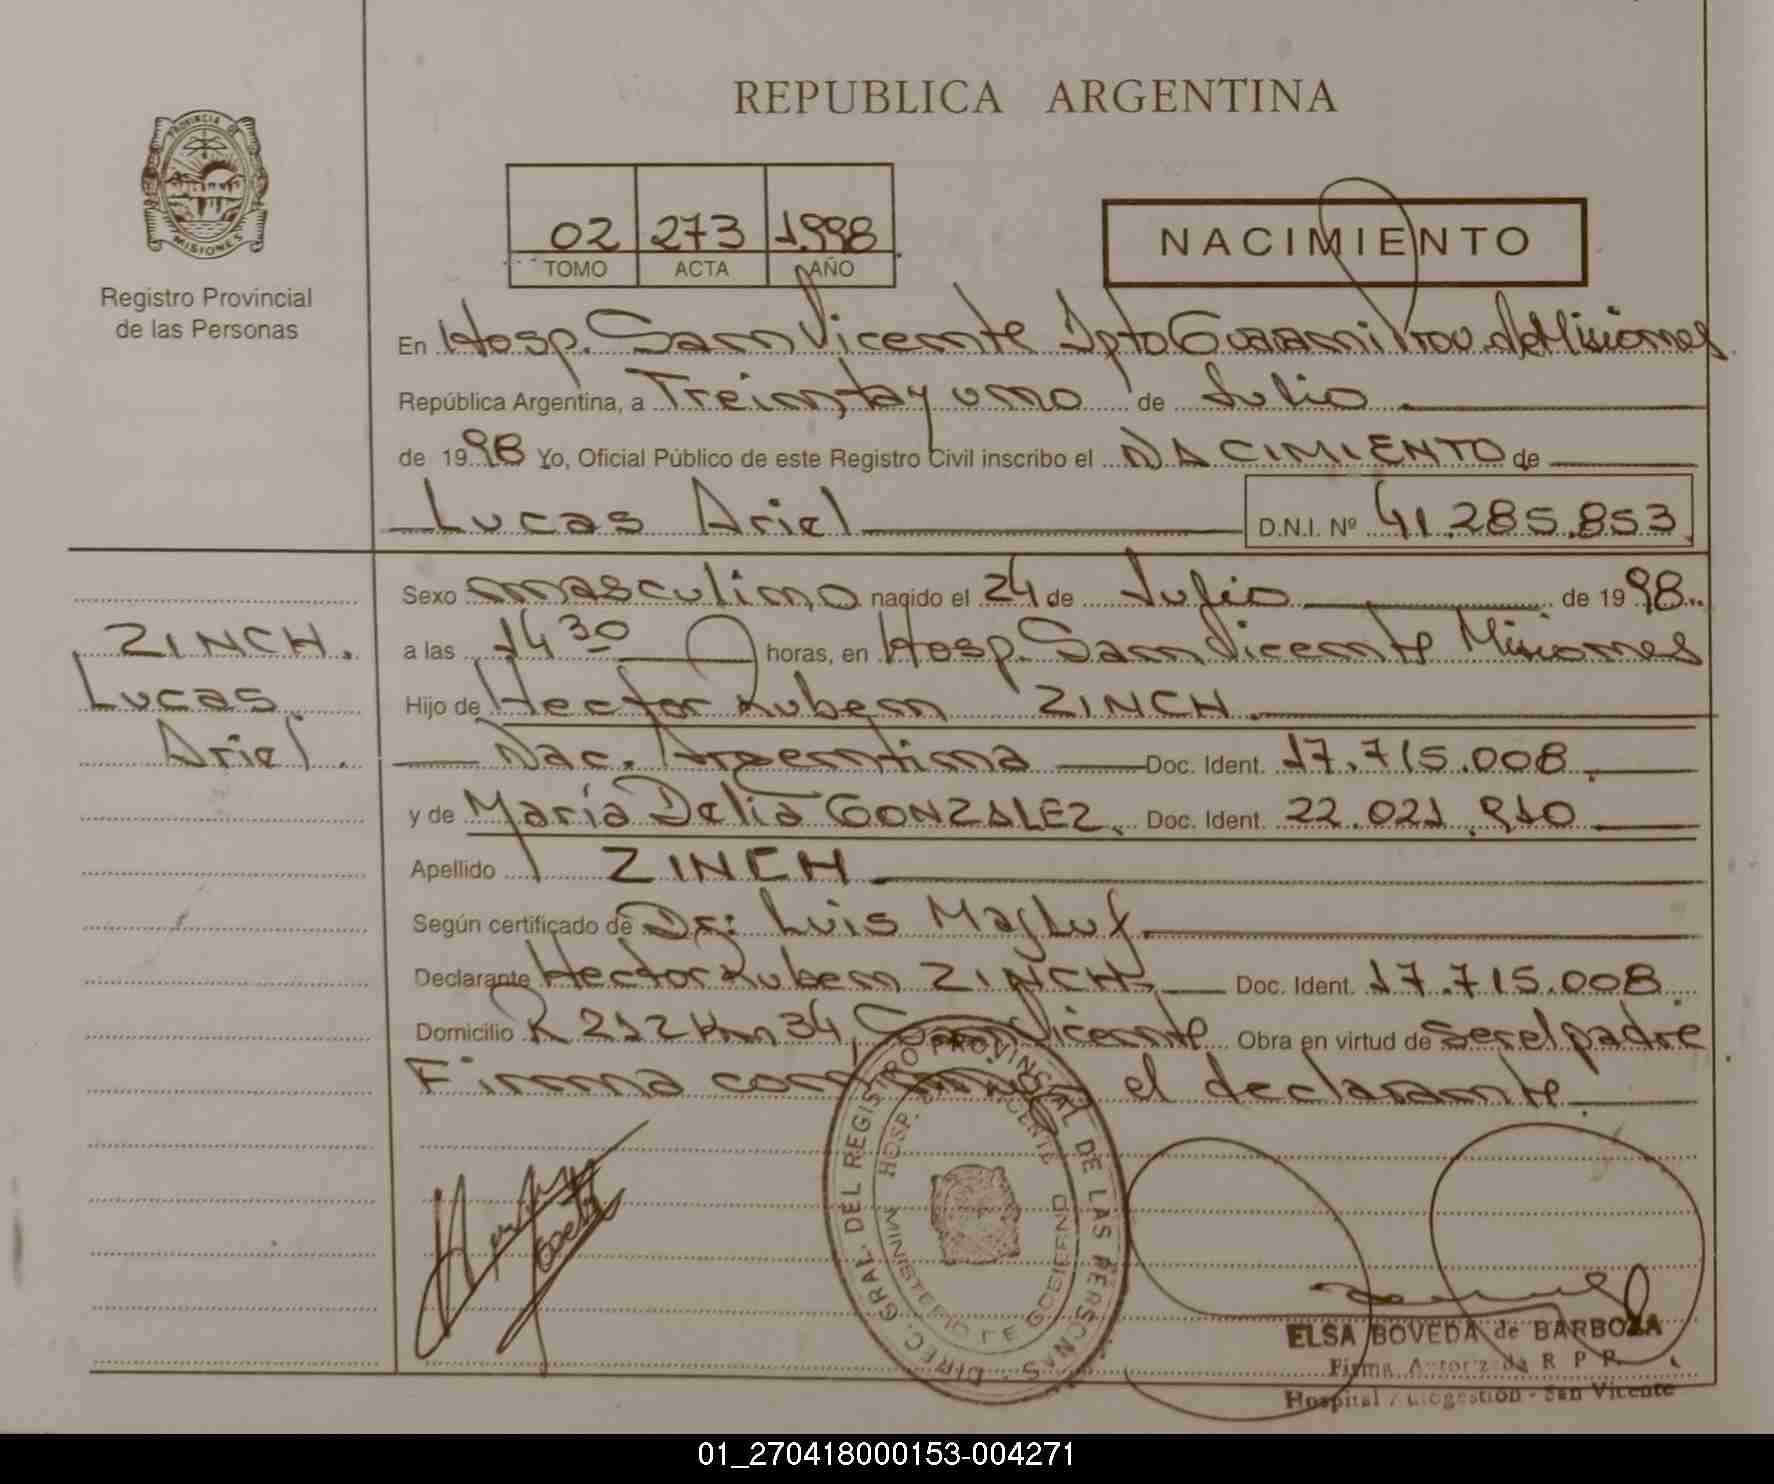 REPUBLICA ARGENTINA
PROVINCIA DE
MISIONES
Registro Provincial
de las Personas
02 273 1.998
TOMO ACTA AÑO
NACIMIENTO
En Hosp. San Vicente Dpto Guarani Prov. de Misiones
República Argentina, a Treinta y uno de Julio
de 19 98 Yo, Oficial Público de este Registro Civil inscribo el NACIMIENTO de
Lucas Ariel D.N.I. Nº 41.285.853
Sexo masculino nacido el 24 de Julio de 19 98
ZINCH.
Lucas
Ariel.
a las 14 30 horas, en Hosp. San Vicente Misiones
Hijo de Hector Ruben ZINCH
Nac. Argentina Doc. Ident. 17.715.008
y de María Delia GONZALEZ. Doc. Ident. 22.021.910
Apellido ZINCH
Según certificado de Dr: Luis Majluf
Declarante Hector Ruben ZINCH Doc. Ident. 17.715.008
Domicilio R 212 Km 34, San Vicente Obra en virtud de ser el padre
Firma conmigo el declarante
DIREC. GRAL. DEL REGISTRO PROVINCIAL DE LAS PERSONAS
HOSP. SAN VICENTE
MINISTERIO DE GOBIERNO
ELSA BOVEDA de BARBOZA
Firma Autorizada R P P
Hospital Autogestión - San Vicente
01_270418000153-004271